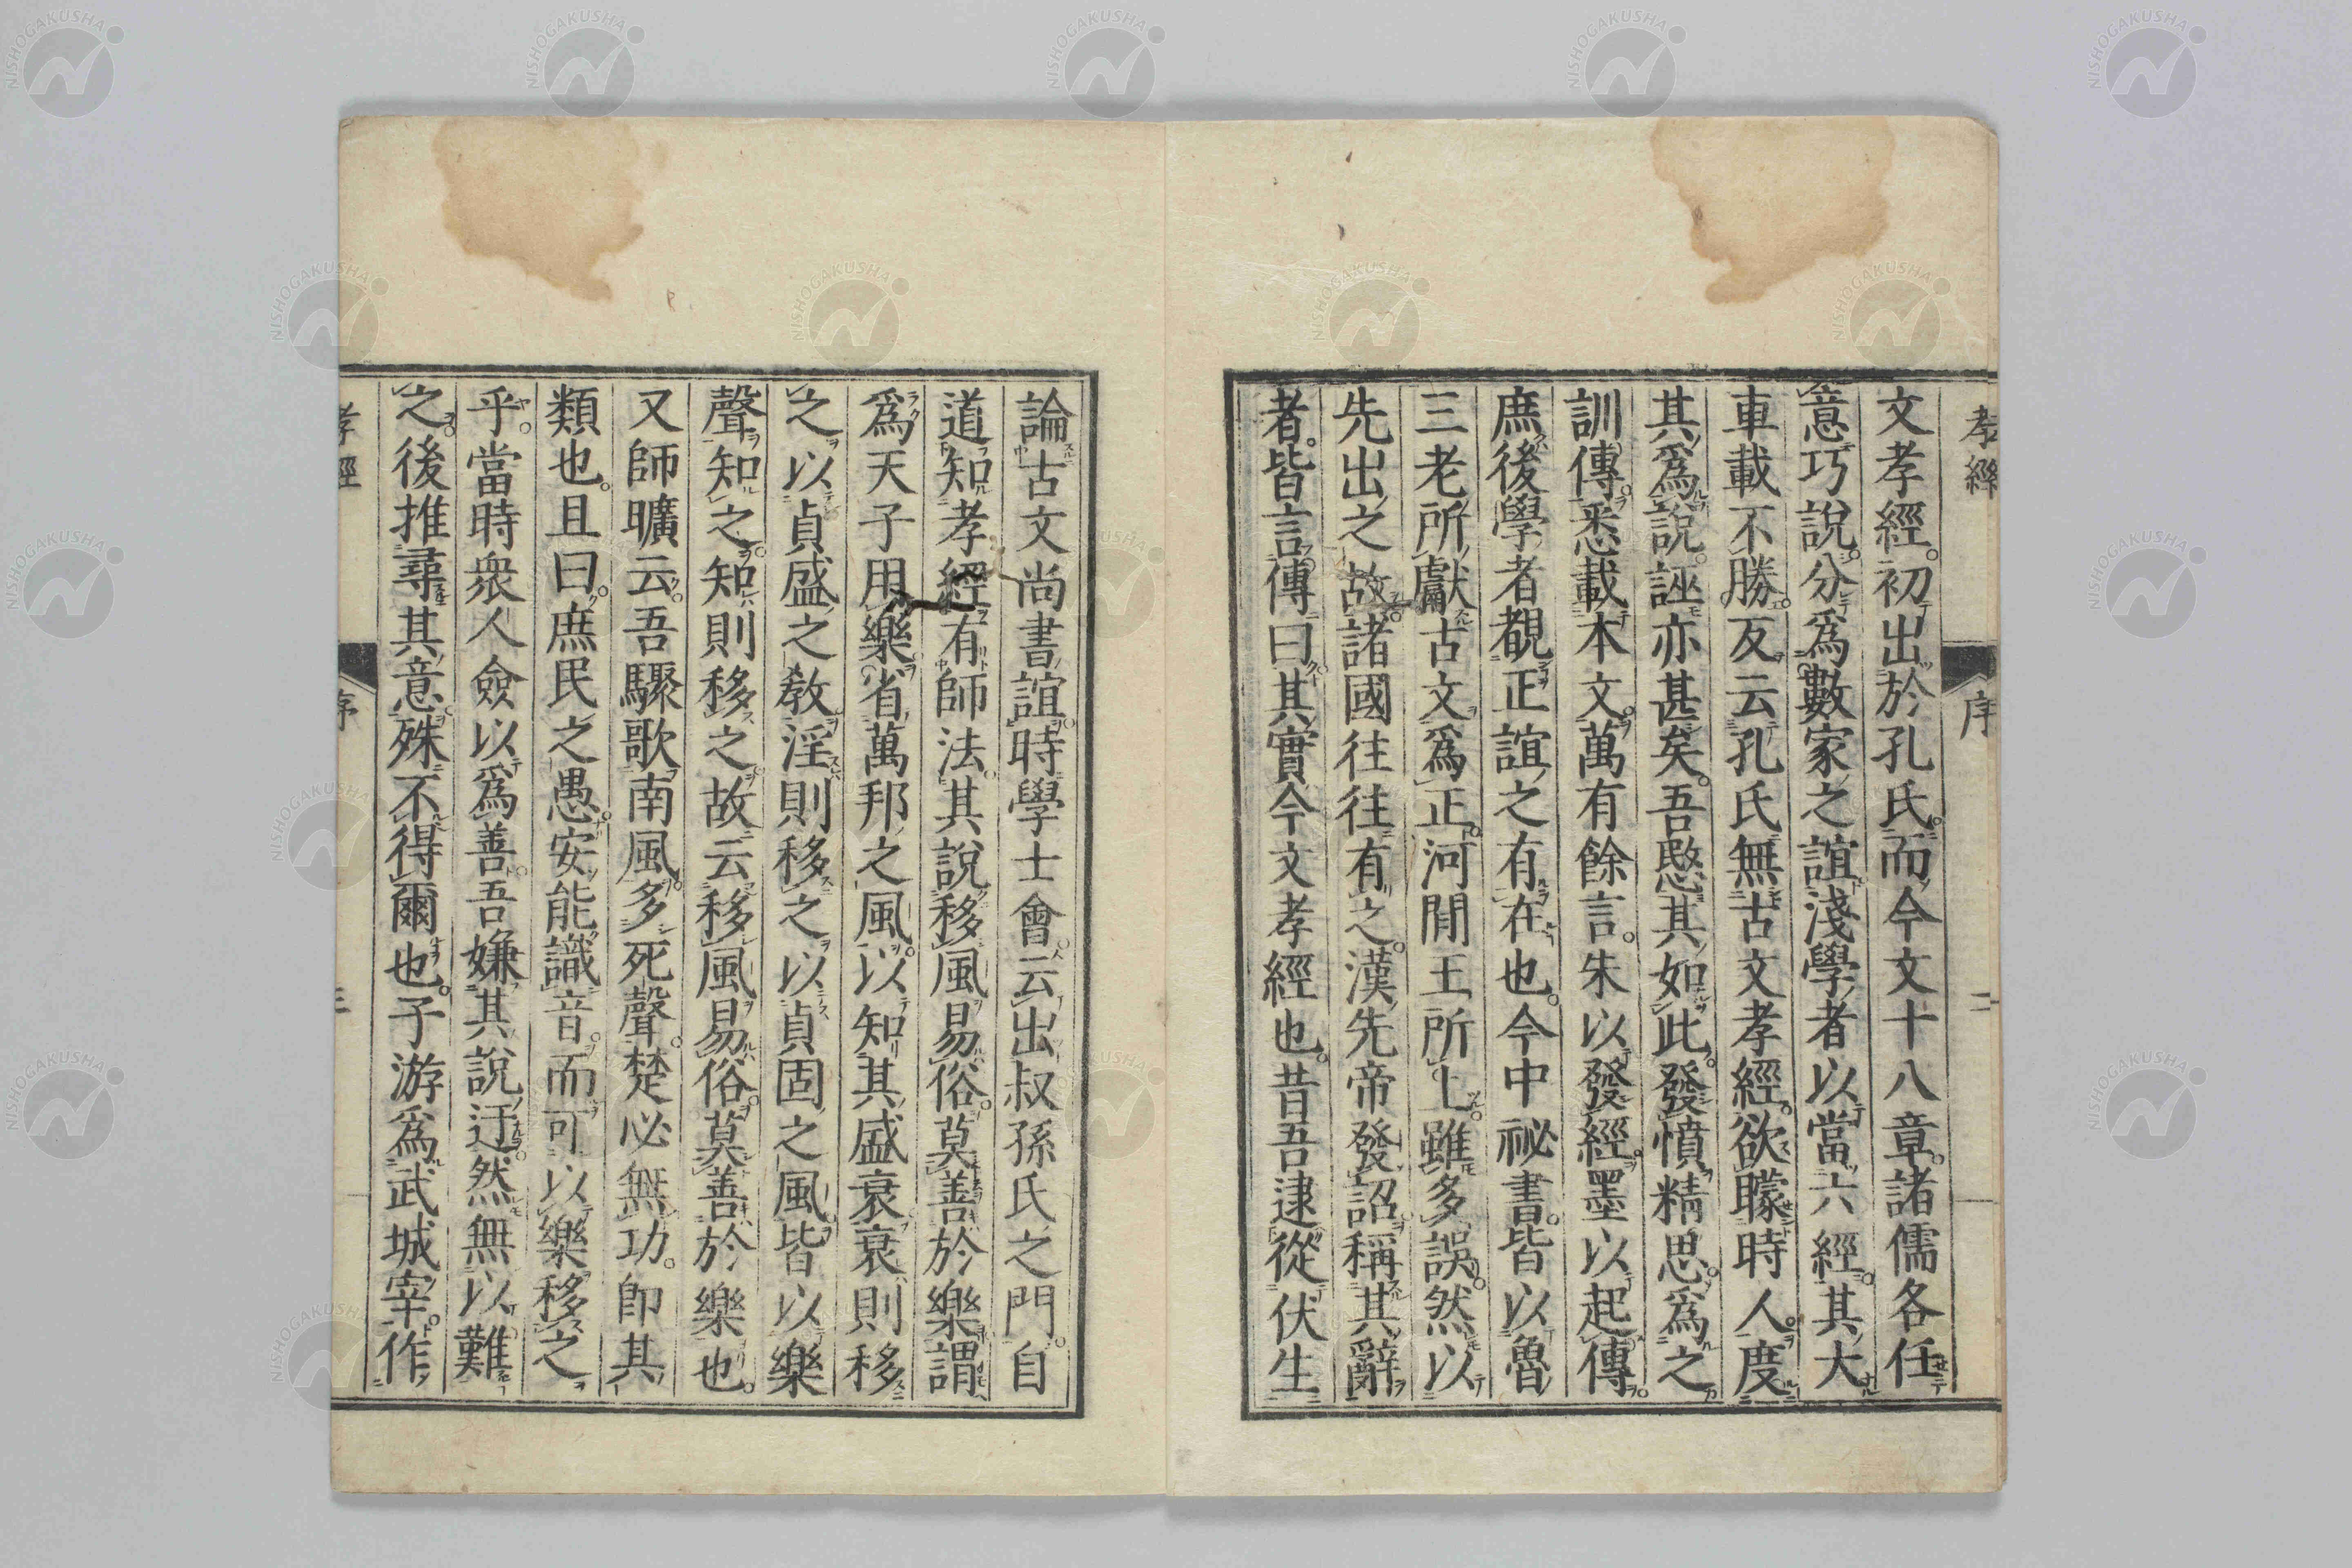 孝經 序 二
文孝經。初出於孔氏。而今文十八章。諸儒各任
意巧說。分爲數家之誼。淺學者以當六經。其大
車載不勝。反云孔氏無古文孝經。欲矇時人。度
其爲說。誣亦甚矣。吾愍其如此。發憤精思。爲之
訓傳。悉載本文。萬有餘言。朱以發經。墨以起傳。
庶後學者覩正誼之有在也。今中祕書。皆以魯
三老所獻古文爲正。河閒王所上。雖多誤。然以
先出之故。諸國往往有之。漢先帝發詔稱其辭
者。皆言傳曰。其實今文孝經也。昔吾逮從伏生
論古文尚書誼。時學士會。云出叔孫氏之門。自
道知孝經有師法。其說移風易俗。莫善於樂。謂
爲天子用樂。省萬邦之風。以知其盛衰。衰則移
之以貞盛之敎。淫則移之以貞固之風。皆以樂
聲知之。知則移之。故云移風易俗。莫善於樂也。
又師曠云。吾驟歌南風。多死聲。楚必無功。卽其
類也。且曰。庶民之愚。安能識音。而可以樂移之
乎。當時衆人僉以爲善。吾嫌其說迂。然無以難
之。後推尋其意。殊不得爾也。子游爲武城宰。作
孝經 序 三
NISHOGAKUSHA